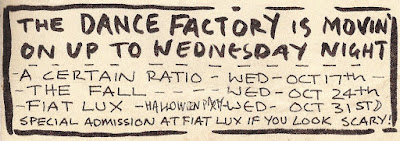 THE DANCE FACTORY IS MOVIN'
ON UP TO WEDNESDAY NIGHT
-A CERTAIN RATIO - WED - OCT 17th -
-THE FALL - - - - - WED - OCT 24th -
-FIAT LUX -HALLOWEEN PARTY- WED - OCT 31STD
SPECIAL ADMISSION AT FIAT LUX IF YOU LOOK SCARY!